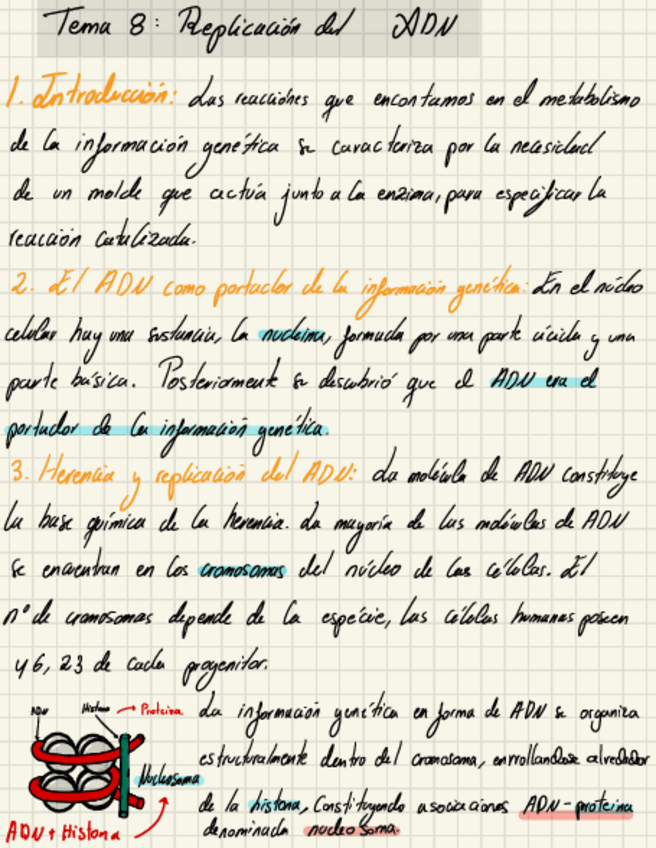 Tema 8: Replicación del ADN
1. Introducción: Las reacciónes que encontamos en el metabolismo
de la información genética se caracteriza por la necesidad
de un molde que actúa junto a la enzima, para especificar la
reacción catalizada.
2. El ADN como portador de la información genética: En el núcleo
celular hay una sustancia, la nucleina, formada por una parte ácida y una
parte básica. Posteriormente se descubrió que el ADN era el
portador de la información genética.
3. Herencia y replicación del ADN: La molécula de ADN constituye
la base química de la herencia. La mayoría de las moléculas de ADN
se encuentran en los cromosomas del núcleo de las células. El
nº de cromosomas depende de la especie, las células humanas poseen
46, 23 de cada progenitor.
ADN Histona → Proteina
La información genética en forma de ADN se organiza
estructuralmente dentro del cromosoma, enrrollandose alrededor
Nucleosoma
de la histona, Constituyendo asociaciones ADN-proteina
denominada nucleosoma.
ADN + Histona